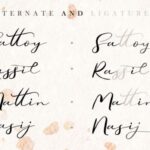 TERNATE AND LIGATURE
Sattoy - Sattoy
Rassil - Rassil
Mattin - Mattin
Nasij - Nasij